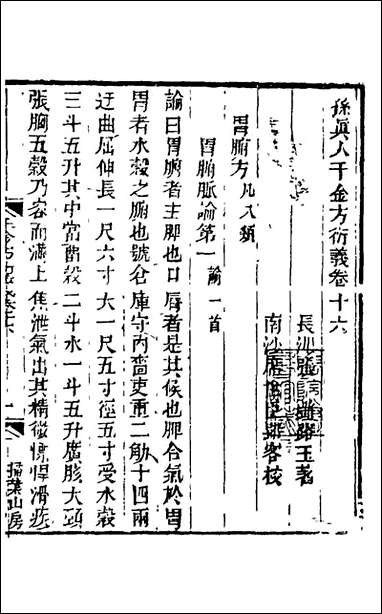 孫真人千金方衍義卷十六
長沙張璐路玉著
南沙席世臣郢客校
胃腑方凡八類
胃腑脈論第一論一首
論曰胃腑者主肉也口唇者是其候也脾合氣於胃
胃者水穀之腑也號倉庫守內嗇吏重二觔十四兩
迂曲屈伸長二尺六寸大一尺五寸徑五寸受水穀
三斗五升其中當留穀二斗水一斗五升廣胲大頭
張胸五穀乃容而滿上焦泄氣出其精微慓悍滑疾
掃葉山房